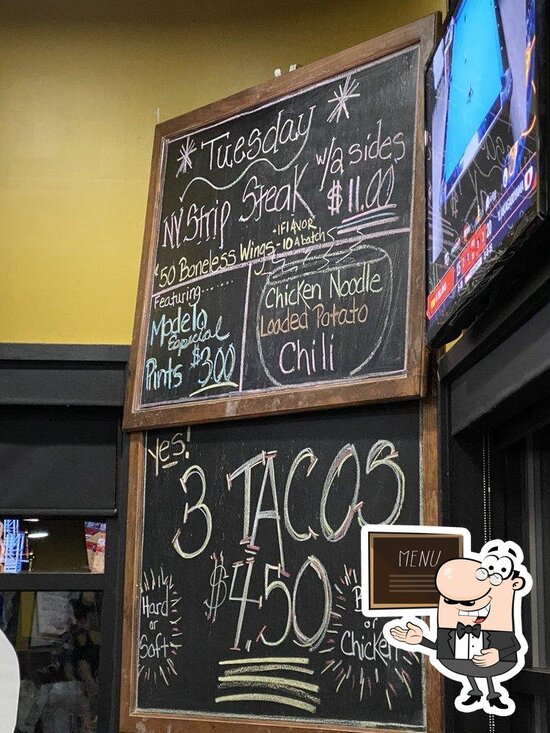 Tuesday
NY Strip Steak w/2 sides
$11.00
-1 FLAVOR
.50 Boneless Wings -10 A batch
Featuring......
Modelo
Especial
Pints $3.00
Chicken Noodle
Loaded Potato
Chili
yes!
3 TACOS
$4.50
Hard
or
Soft
or
Chicken
MENU